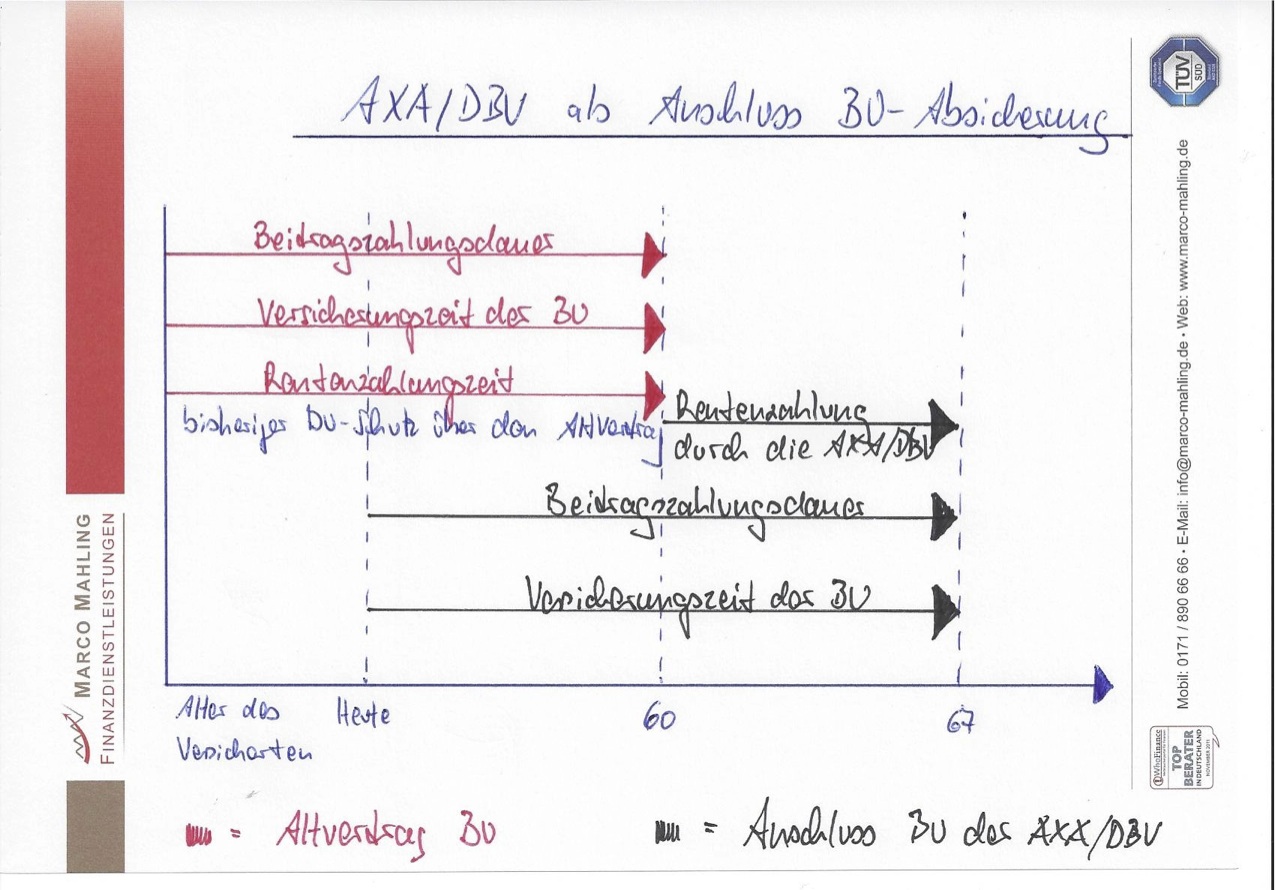 AXA/DBV als Anschluss BU-Absicherung
Beitragszahlungsdauer
Versicherungszeit der BU
Rentenzahlungszeit
bisheriger BU-Schutz über den Altvertrag
Rentenzahlung
durch die AXA/DBV
Beitragszahlungsdauer
Versicherungszeit der BU
Alter des
Versicherten
Heute
60
67
= Altvertrag BU
= Anschluss BU der AXA/DBV
MARCO MAHLING
FINANZDIENSTLEISTUNGEN
TÜV
SÜD
Mobil: 0171 / 890 66 66 • E-Mail: info@marco-mahling.de • Web: www.marco-mahling.de
WhoFinance
TOP
BERATER
IN DEUTSCHLAND
NOVEMBER 2011